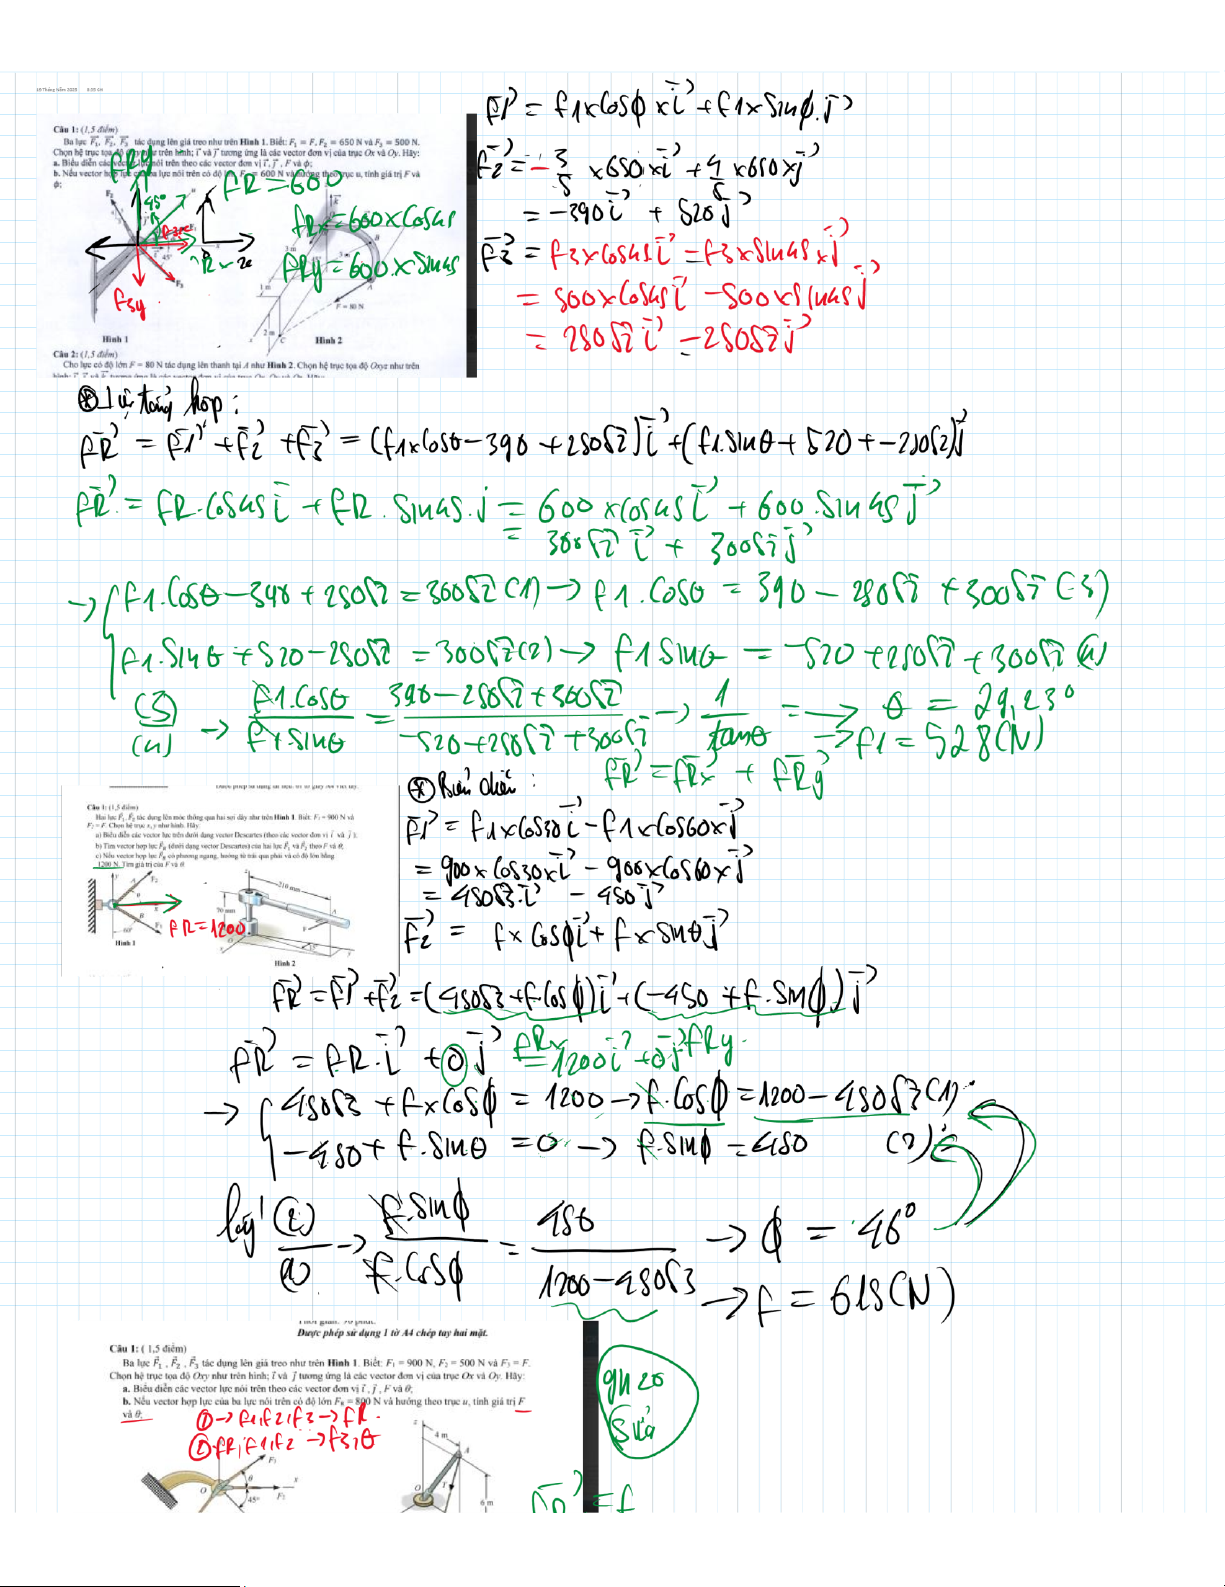 10 Tháng Năm 2025 8:55 SA
Câu 1: (1,5 điểm)
Ba lực F₁, F₂, F₃ tác dụng lên giá treo như trên Hình 1. Biết: F₁ = F, F₂ = 650 N và F₃ = 500 N.
Chọn hệ trục tọa độ như trên hình; i⃗ và j⃗ tương ứng là các vector đơn vị của trục Ox và Oy. Hãy:
a. Biểu diễn các vector lực nói trên theo các vector đơn vị i⃗, j⃗, F và ϕ;
b. Nếu vector hợp lực của ba lực nói trên có độ lớn = 600 N và hướng theo trục u, tính giá trị F và
ϕ;
fRy
45°
fR = 600
fRx = 600xCos45
fRy = 600xSin45
f3y
F₂
F₃
45°
3 m
B
A
1 m
2 m
C
F = 80 N
Hình 1
Hình 2
Câu 2: (1,5 điểm)
Cho lực có độ lớn F = 80 N tác dụng lên thanh tại A như Hình 2. Chọn hệ trục tọa độ Oxyz như trên
F1⃗ = f1xCosϕ x i⃗ + f1xSinϕ.j⃗
F2⃗ = - 3/5 x650x i⃗ + 4/5 x650x j⃗
= -390 i⃗ + 520 j⃗
F3⃗ = f3xCos45 i⃗ = f3xSin45 x j⃗
= 500xCos45 i⃗ - 500xSin45 j⃗
= 250√2 i⃗ - 250√2 j⃗
⊛ Lực tổng hợp:
FR⃗ = F1⃗ + F2⃗ + F3⃗ = (f1xCosθ - 390 + 250√2) i⃗ + (f1.Sinθ + 520 + -250√2) j⃗
FR⃗ = FR.Cos45 i⃗ + FR.Sin45.j = 600xCos45 i⃗ + 600.Sin45 j⃗
= 300√2 i⃗ + 300√2 j⃗
→ { f1.Cosθ - 390 + 250√2 = 300√2 (1) → f1.Cosθ = 390 - 250√2 + 300√2 (3)
f1.Sinθ + 520 - 250√2 = 300√2 (2) → f1Sinθ = -520 + 250√2 + 300√2 (4)
(3)/(4) → f1.Cosθ / f1.Sinθ = 390 - 250√2 + 300√2 / -520 + 250√2 + 300√2 → 1/tanθ = → θ = 29,23°
→ f1 = 528(N)
FR⃗ = FRx⃗ + FRy⃗
Câu 1: (1,5 điểm)
Hai lực F₁, F₂ tác dụng lên móc thông qua hai sợi dây như trên Hình 1. Biết: F₁ = 900 N và
F₂ = F. Chọn hệ trục x, y như hình. Hãy:
a) Biểu diễn các vector lực trên dưới dạng vector Descartes (theo các vector đơn vị i⃗ và j⃗);
b) Tìm vector hợp lực F_R (dưới dạng vector Descartes) của hai lực F₁ và F₂ theo F và θ;
c) Nếu vector hợp lực F_R có phương ngang, hướng từ trái qua phải và có độ lớn bằng
1200 N. Tìm giá trị của F và θ
y
F₂
A
θ
x
B
60°
F₁
fR = 1200
Hình 1
z
210 mm
70 mm
A
F
15°
Hình 2
⊛ Biểu diễn:
F1⃗ = f1xCos30 i⃗ - f1xCos60x j⃗
= 900xCos30x i⃗ - 900xCos60x j⃗
= 450√3.i⃗ - 450 j⃗
F2⃗ = fxCosϕ i⃗ + fxSinθ j⃗
FR⃗ = F1⃗ + F2⃗ = (450√3 + f.Cosϕ) i⃗ + (-450 + f.Sinϕ) j⃗
FR⃗ = FR.i⃗ + 0 j⃗ = 1200 i⃗ + 0 j⃗
fRx
fRy
→ { 450√3 + fxCosϕ = 1200 → f.Cosϕ = 1200 - 450√3 (1)
-450 + f.Sinθ = 0 → f.Sinϕ = 450 (2)
lấy (2)/(1) → f.Sinϕ / f.Cosϕ = 450 / 1200 - 450√3 → ϕ = 46°
→ f = 615(N)
Thời gian: 90 phút.
Được phép sử dụng 1 tờ A4 chép tay hai mặt.
Câu 1: ( 1,5 điểm)
Ba lực F₁, F₂, F₃ tác dụng lên giá treo như trên Hình 1. Biết: F₁ = 900 N, F₂ = 500 N và F₃ = F.
Chọn hệ trục tọa độ Oxy như trên hình; i⃗ và j⃗ tương ứng là các vector đơn vị của trục Ox và Oy. Hãy:
a. Biểu diễn các vector lực nói trên theo các vector đơn vị i⃗, j⃗, F và θ;
b. Nếu vector hợp lực của ba lực nói trên có độ lớn F_R = 800 N và hướng theo trục u, tính giá trị F
và θ;
① → f1,f2,f3 → fR.
② fR,f1,f2 → f3,θ
F₁
θ
x
O
F₂
45°
z
4 m
A
O
6 m
9h20
Sửa
FR⃗ = f